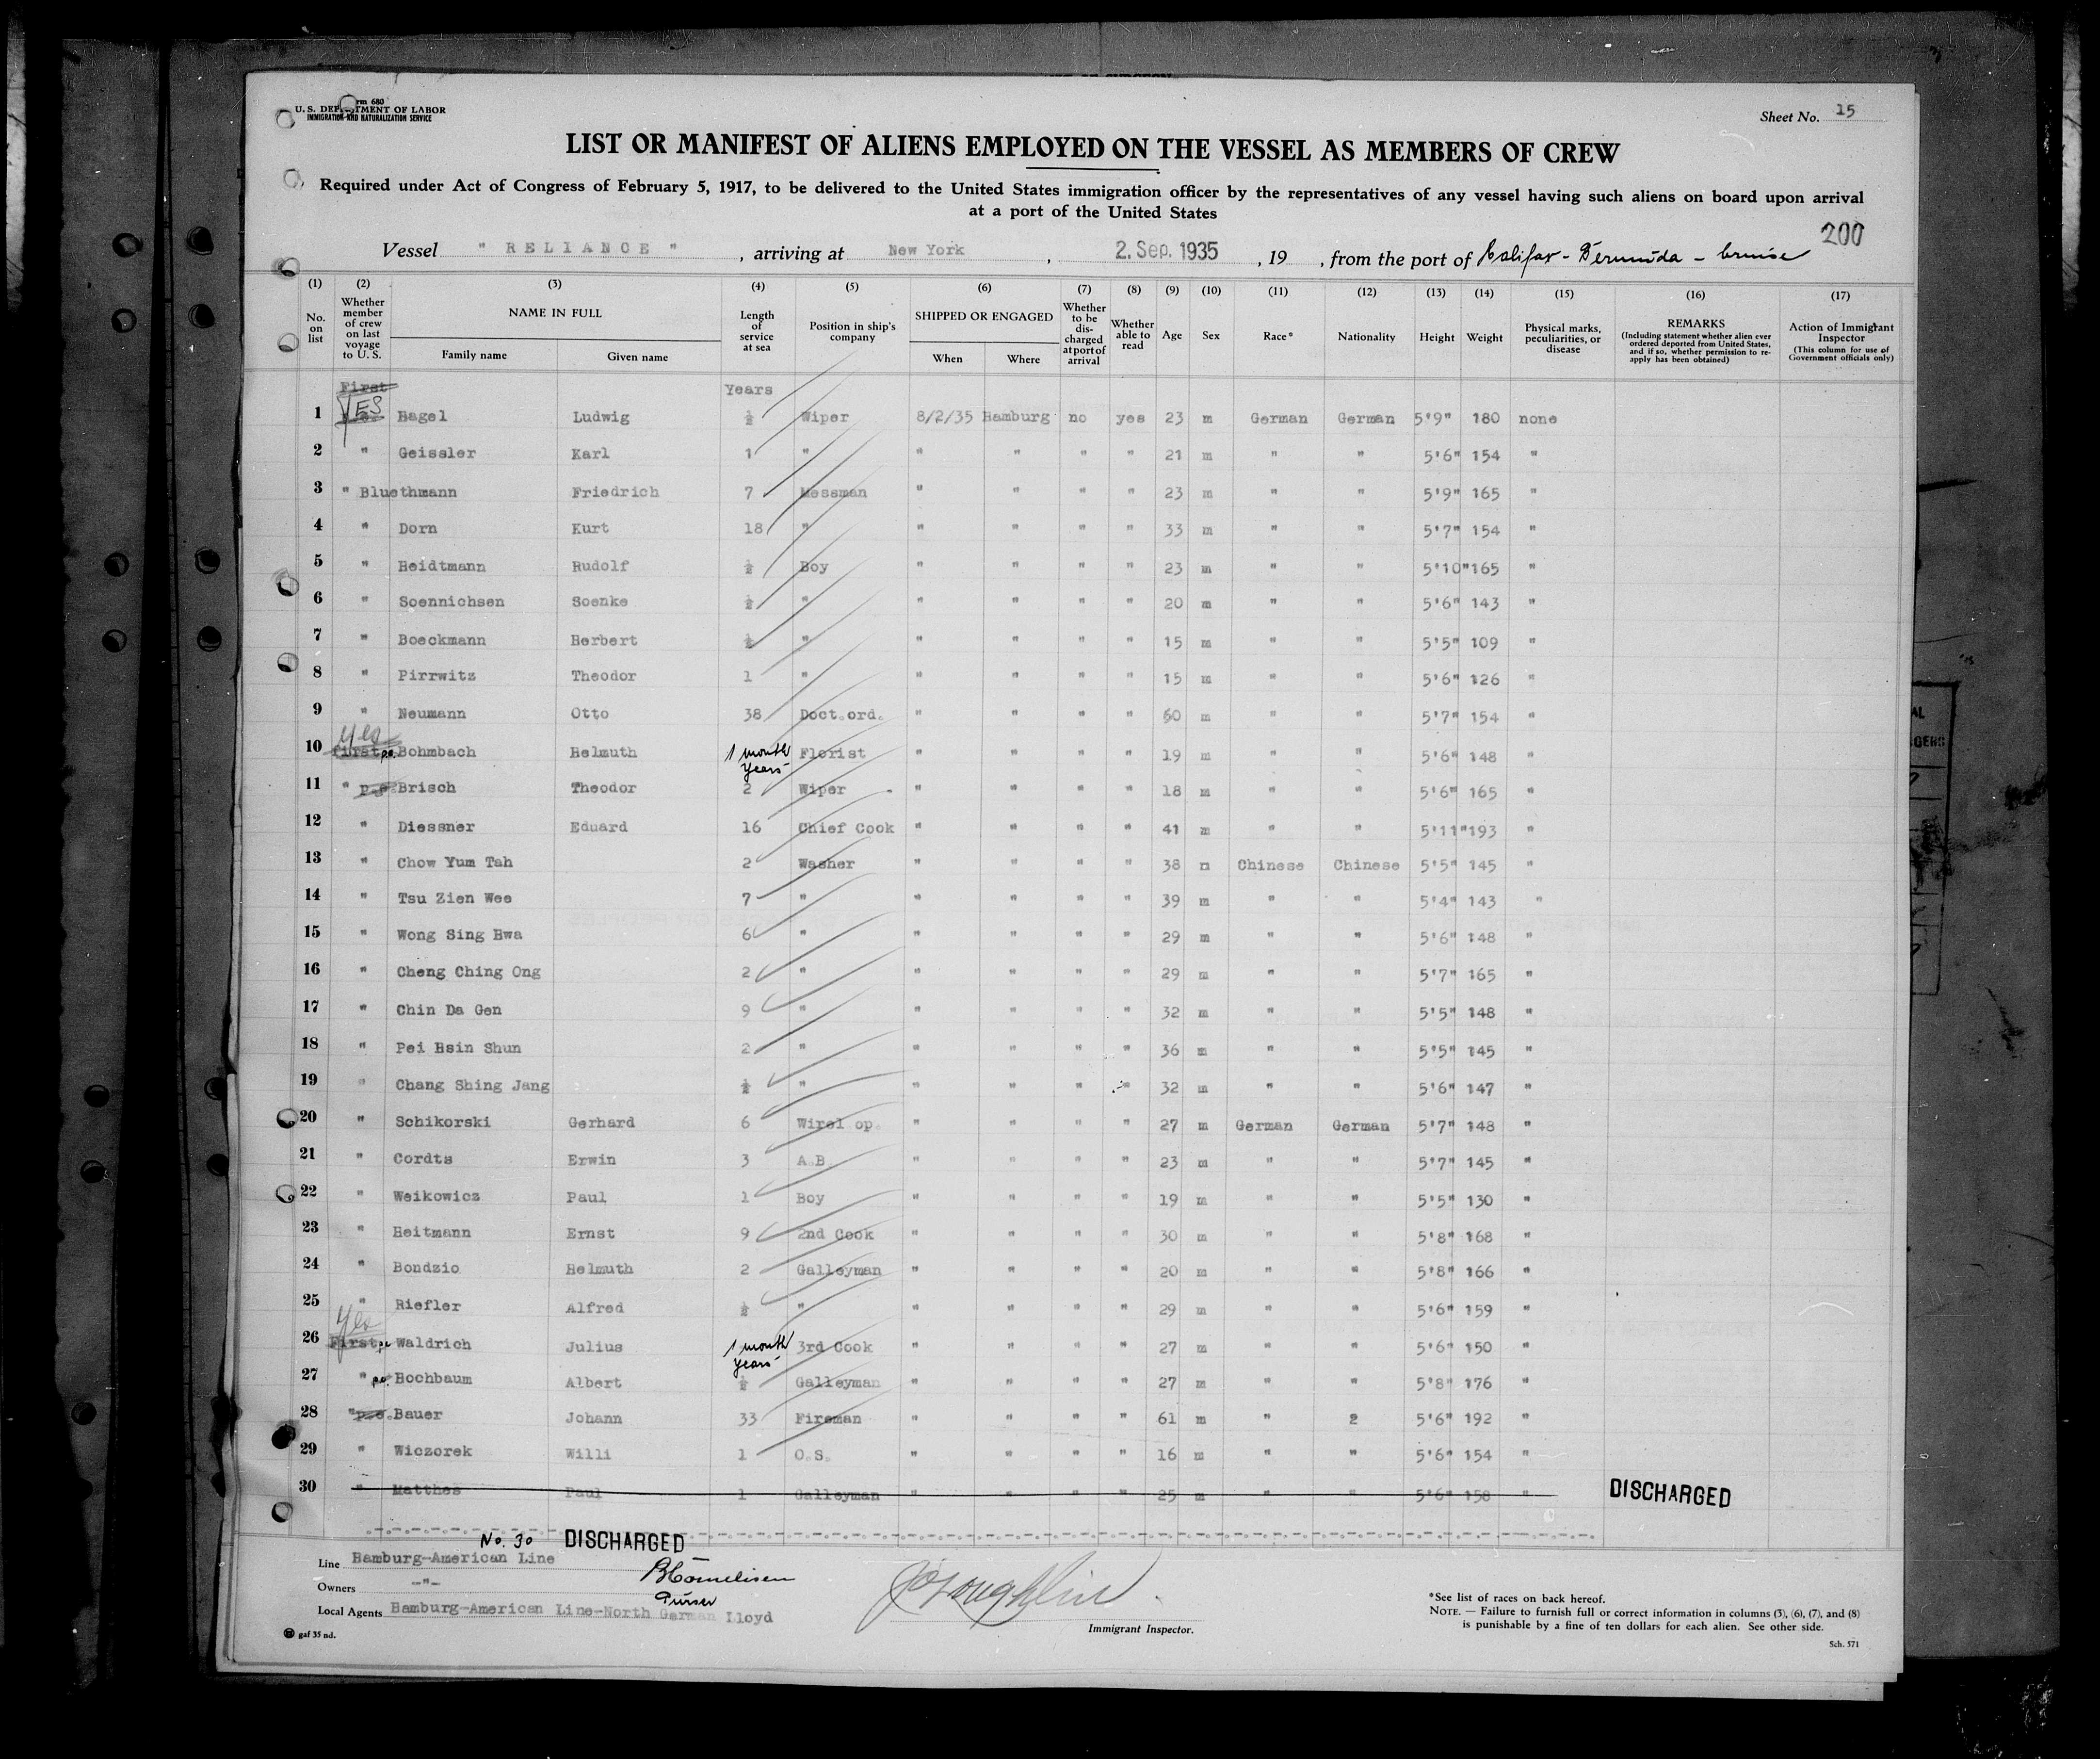 Form 680
U. S. DEPARTMENT OF LABOR
IMMIGRATION AND NATURALIZATION SERVICE
Sheet No. 15
LIST OR MANIFEST OF ALIENS EMPLOYED ON THE VESSEL AS MEMBERS OF CREW
Required under Act of Congress of February 5, 1917, to be delivered to the United States immigration officer by the representatives of any vessel having such aliens on board upon arrival
at a port of the United States
200
Vessel " RELIANCE " , arriving at New York , 2. Sep. 1935 , 19 , from the port of Halifax - Bermuda - cruise
(1) (2) (3) (4) (5) (6) (7) (8) (9) (10) (11) (12) (13) (14) (15) (16) (17)
No. on list
Whether member of crew on last voyage to U. S.
NAME IN FULL
Family name Given name
Length of service at sea
Position in ship's company
SHIPPED OR ENGAGED
When Where
Whether to be discharged at port of arrival
Whether able to read
Age
Sex
Race*
Nationality
Height
Weight
Physical marks, peculiarities, or disease
REMARKS
(Including statement whether alien ever ordered deported from United States, and if so, whether permission to reapply has been obtained)
Action of Immigrant Inspector
(This column for use of Government officials only)
First Years
1 YES Hagel Ludwig ½ Wiper 8/2/35 Hamburg no yes 23 m German German 5'9" 180 none
2 " Geissler Karl 1 " " " " " 21 m " " 5'6" 154 "
3 " Bluethmann Friedrich 7 Messman " " " " 23 m " " 5'9" 165 "
4 " Dorn Kurt 18 " " " " " 33 m " " 5'7" 154 "
5 " Heidtmann Rudolf ½ Boy " " " " 23 m " " 5'10" 165 "
6 " Soennichsen Soenke ½ " " " " " 20 m " " 5'6" 143 "
7 " Boeckmann Herbert ½ " " " " " 15 m " " 5'5" 109 "
8 " Pirrwitz Theodor 1 " " " " " 15 m " " 5'6" 126 "
9 " Neumann Otto 38 Doct.ord. " " " " 60 m " " 5'7" 154 "
Yes
10 first p.o. Bohmbach Helmuth 1 month Florist " " " " 19 m " " 5'6" 148 "
Years
11 " p.o. Brisch Theodor 2 Wiper " " " " 18 m " " 5'6" 165 "
12 " Diessner Eduard 16 Chief Cook " " " " 41 m " " 5'11" 193 "
13 " Chow Yum Tah 2 Washer " " " " 38 m Chinese Chinese 5'5" 145 "
14 " Tsu Zien Wee 7 " " " " " 39 m " " 5'4" 143 "
15 " Wong Sing Hwa 6 " " " " " 29 m " " 5'6" 148 "
16 " Cheng Ching Ong 2 " " " " " 29 m " " 5'7" 165 "
17 " Chin Da Gen 9 " " " " " 32 m " " 5'5" 148 "
18 " Pei Hsin Shun 2 " " " " " 36 m " " 5'5" 145 "
19 " Chang Shing Jang ½ " " " " " 32 m " " 5'6" 147 "
20 " Schikorski Gerhard 6 Wirel op. " " " " 27 m German German 5'7" 148 "
21 " Cordts Erwin 3 A.B. " " " " 23 m " " 5'7" 145 "
22 " Weikowicz Paul 1 Boy " " " " 19 m " " 5'5" 130 "
23 " Heitmann Ernst 9 2nd Cook " " " " 30 m " " 5'8" 168 "
24 " Bondzio Helmuth 2 Galleyman " " " " 20 m " " 5'8" 166 "
25 " Riefler Alfred ½ " " " " " 29 m " " 5'6" 159 "
Yes
26 First p.o. Waldrich Julius 1 month 3rd Cook " " " " 27 m " " 5'6" 150 "
Years
27 " p.o. Hochbaum Albert ½ Galleyman " " " " 27 m " " 5'8" 176 "
28 " p.o. Bauer Johann 33 Fireman " " " " 61 m " 2 5'6" 192 "
29 " Wiczorek Willi 1 O.S. " " " " 16 m " " 5'6" 154 "
30 " Matthes Paul 1 Galleyman " " " " 25 m " " 5'6" 158 " DISCHARGED
No. 30 DISCHARGED
Line Hamburg-American Line
Owners -"-
Purser
Local Agents Hamburg-American Line-North German Lloyd
Immigrant Inspector.
*See list of races on back hereof.
NOTE. — Failure to furnish full or correct information in columns (3), (6), (7), and (8)
is punishable by a fine of ten dollars for each alien. See other side.
gaf 35 nd.
Sch. 571